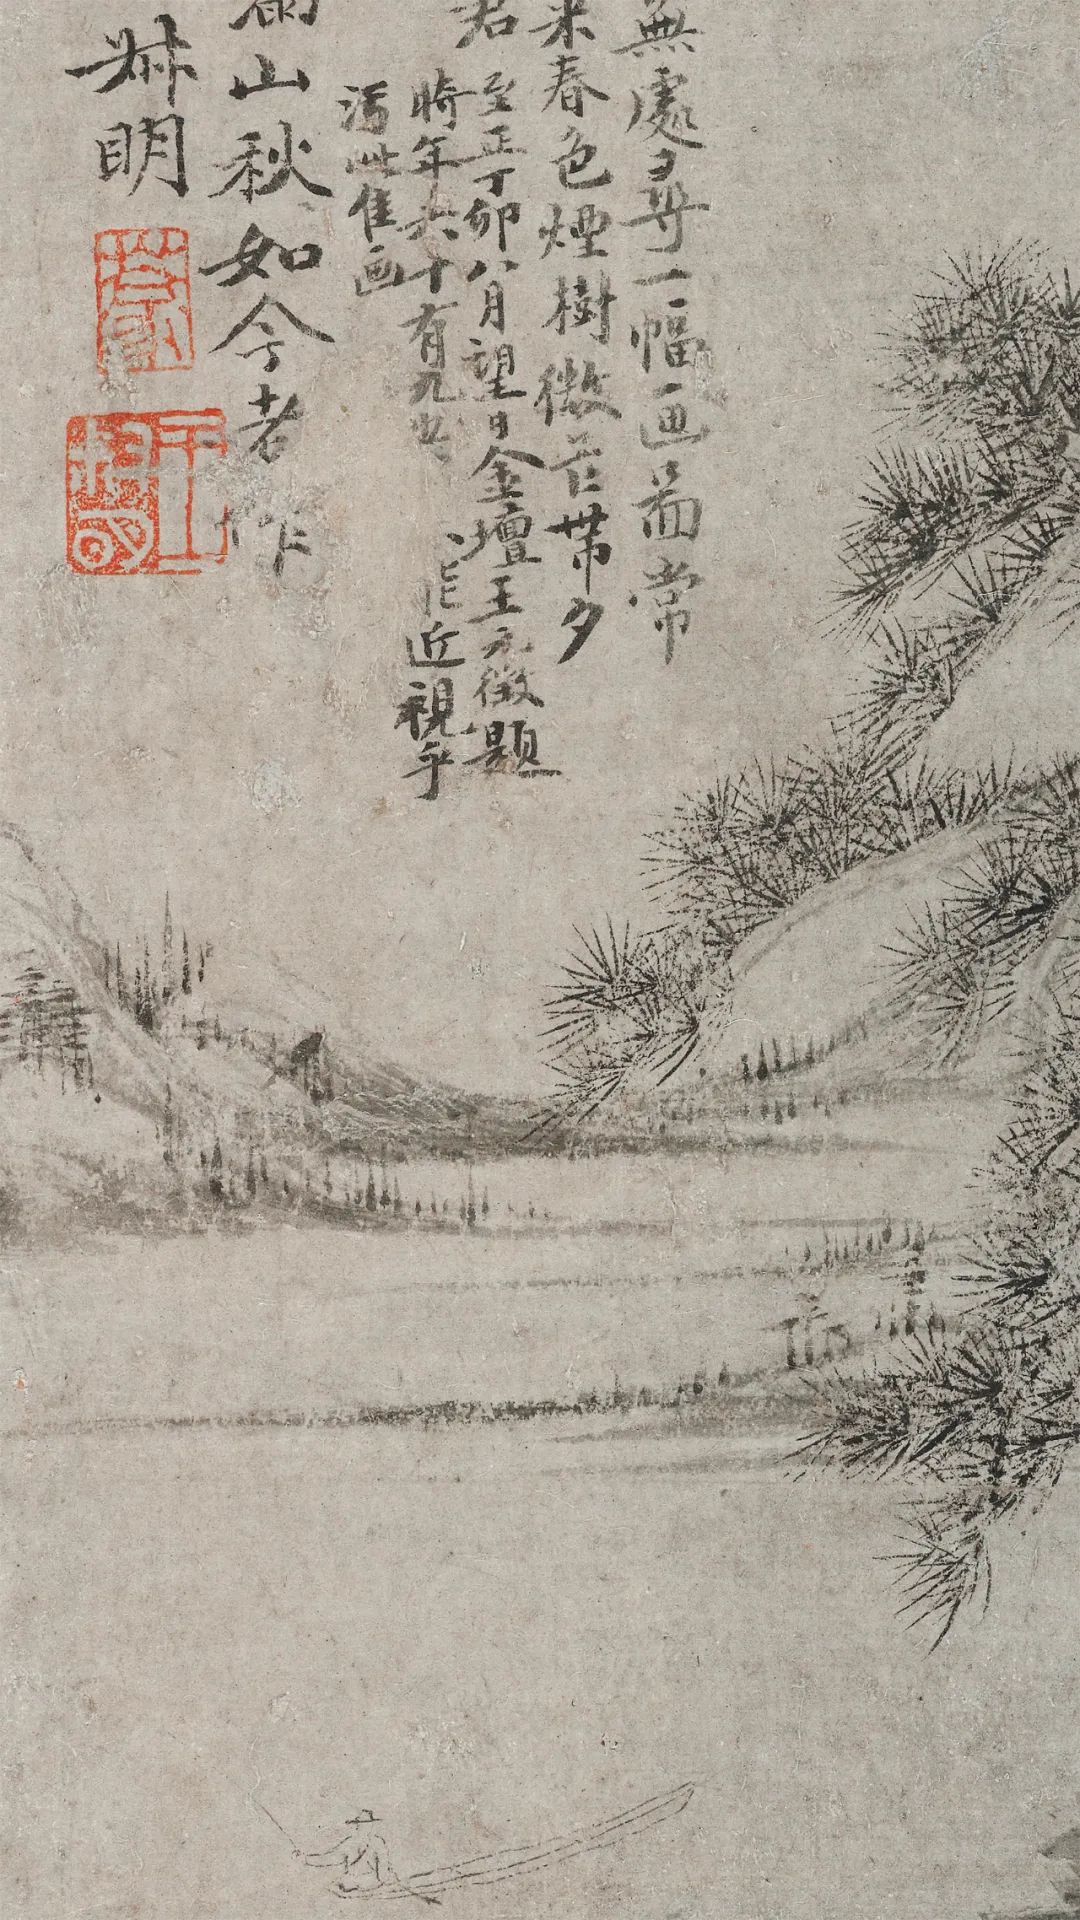 無處尋一幅画啚常
来春色煙樹微茫帯夕
君
至正丁卯八月望日金壇王元徴題
時年六十有九也
近視乎
污此隹画
山秋如今者作
叔明